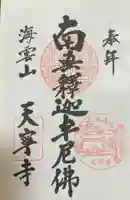 奉拜
南無釋迦牟尼佛
海雲山
天寧寺